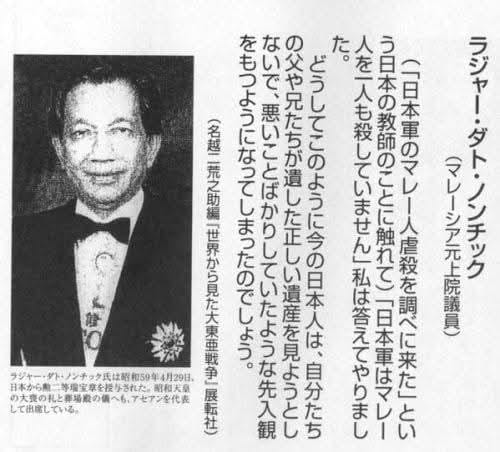 ラジャー・ダト・ノンチック
（マレーシア元上院議員）
（「日本軍のマレー人虐殺を調べに来た」とい
う日本の教師のことに触れて）「日本軍はマレー
人を一人も殺していません」私は答えてやりまし
た。
どうしてこのように今の日本人は、自分たち
の父や兄たちが遺した正しい遺産を見ようとし
ないで、悪いことばかりしていたような先入観
をもつようになってしまったのでしょう。
（名越二荒之助編『世界から見た大東亜戦争』展転社）
ラジャー・ダト・ノンチック氏は昭和59年4月29日、
日本から勲二等瑞宝章を授与された。昭和天皇
の大喪の礼と葬場殿の儀へも、アセアンを代表
して出席している。